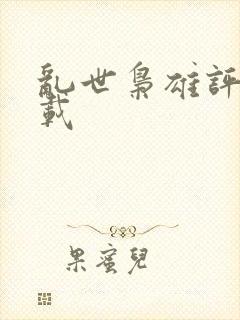 亂世梟雄評
載
果蜜兒